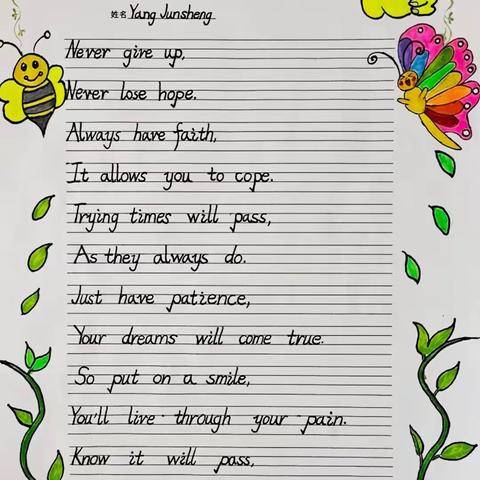 姓名 Yang Junsheng
Never give up,
Never lose hope.
Always have faith,
It allows you to cope.
Trying times will pass,
As they always do.
Just have patience,
Your dreams will come true.
So put on a smile,
You'll live through your pain.
Know it will pass,